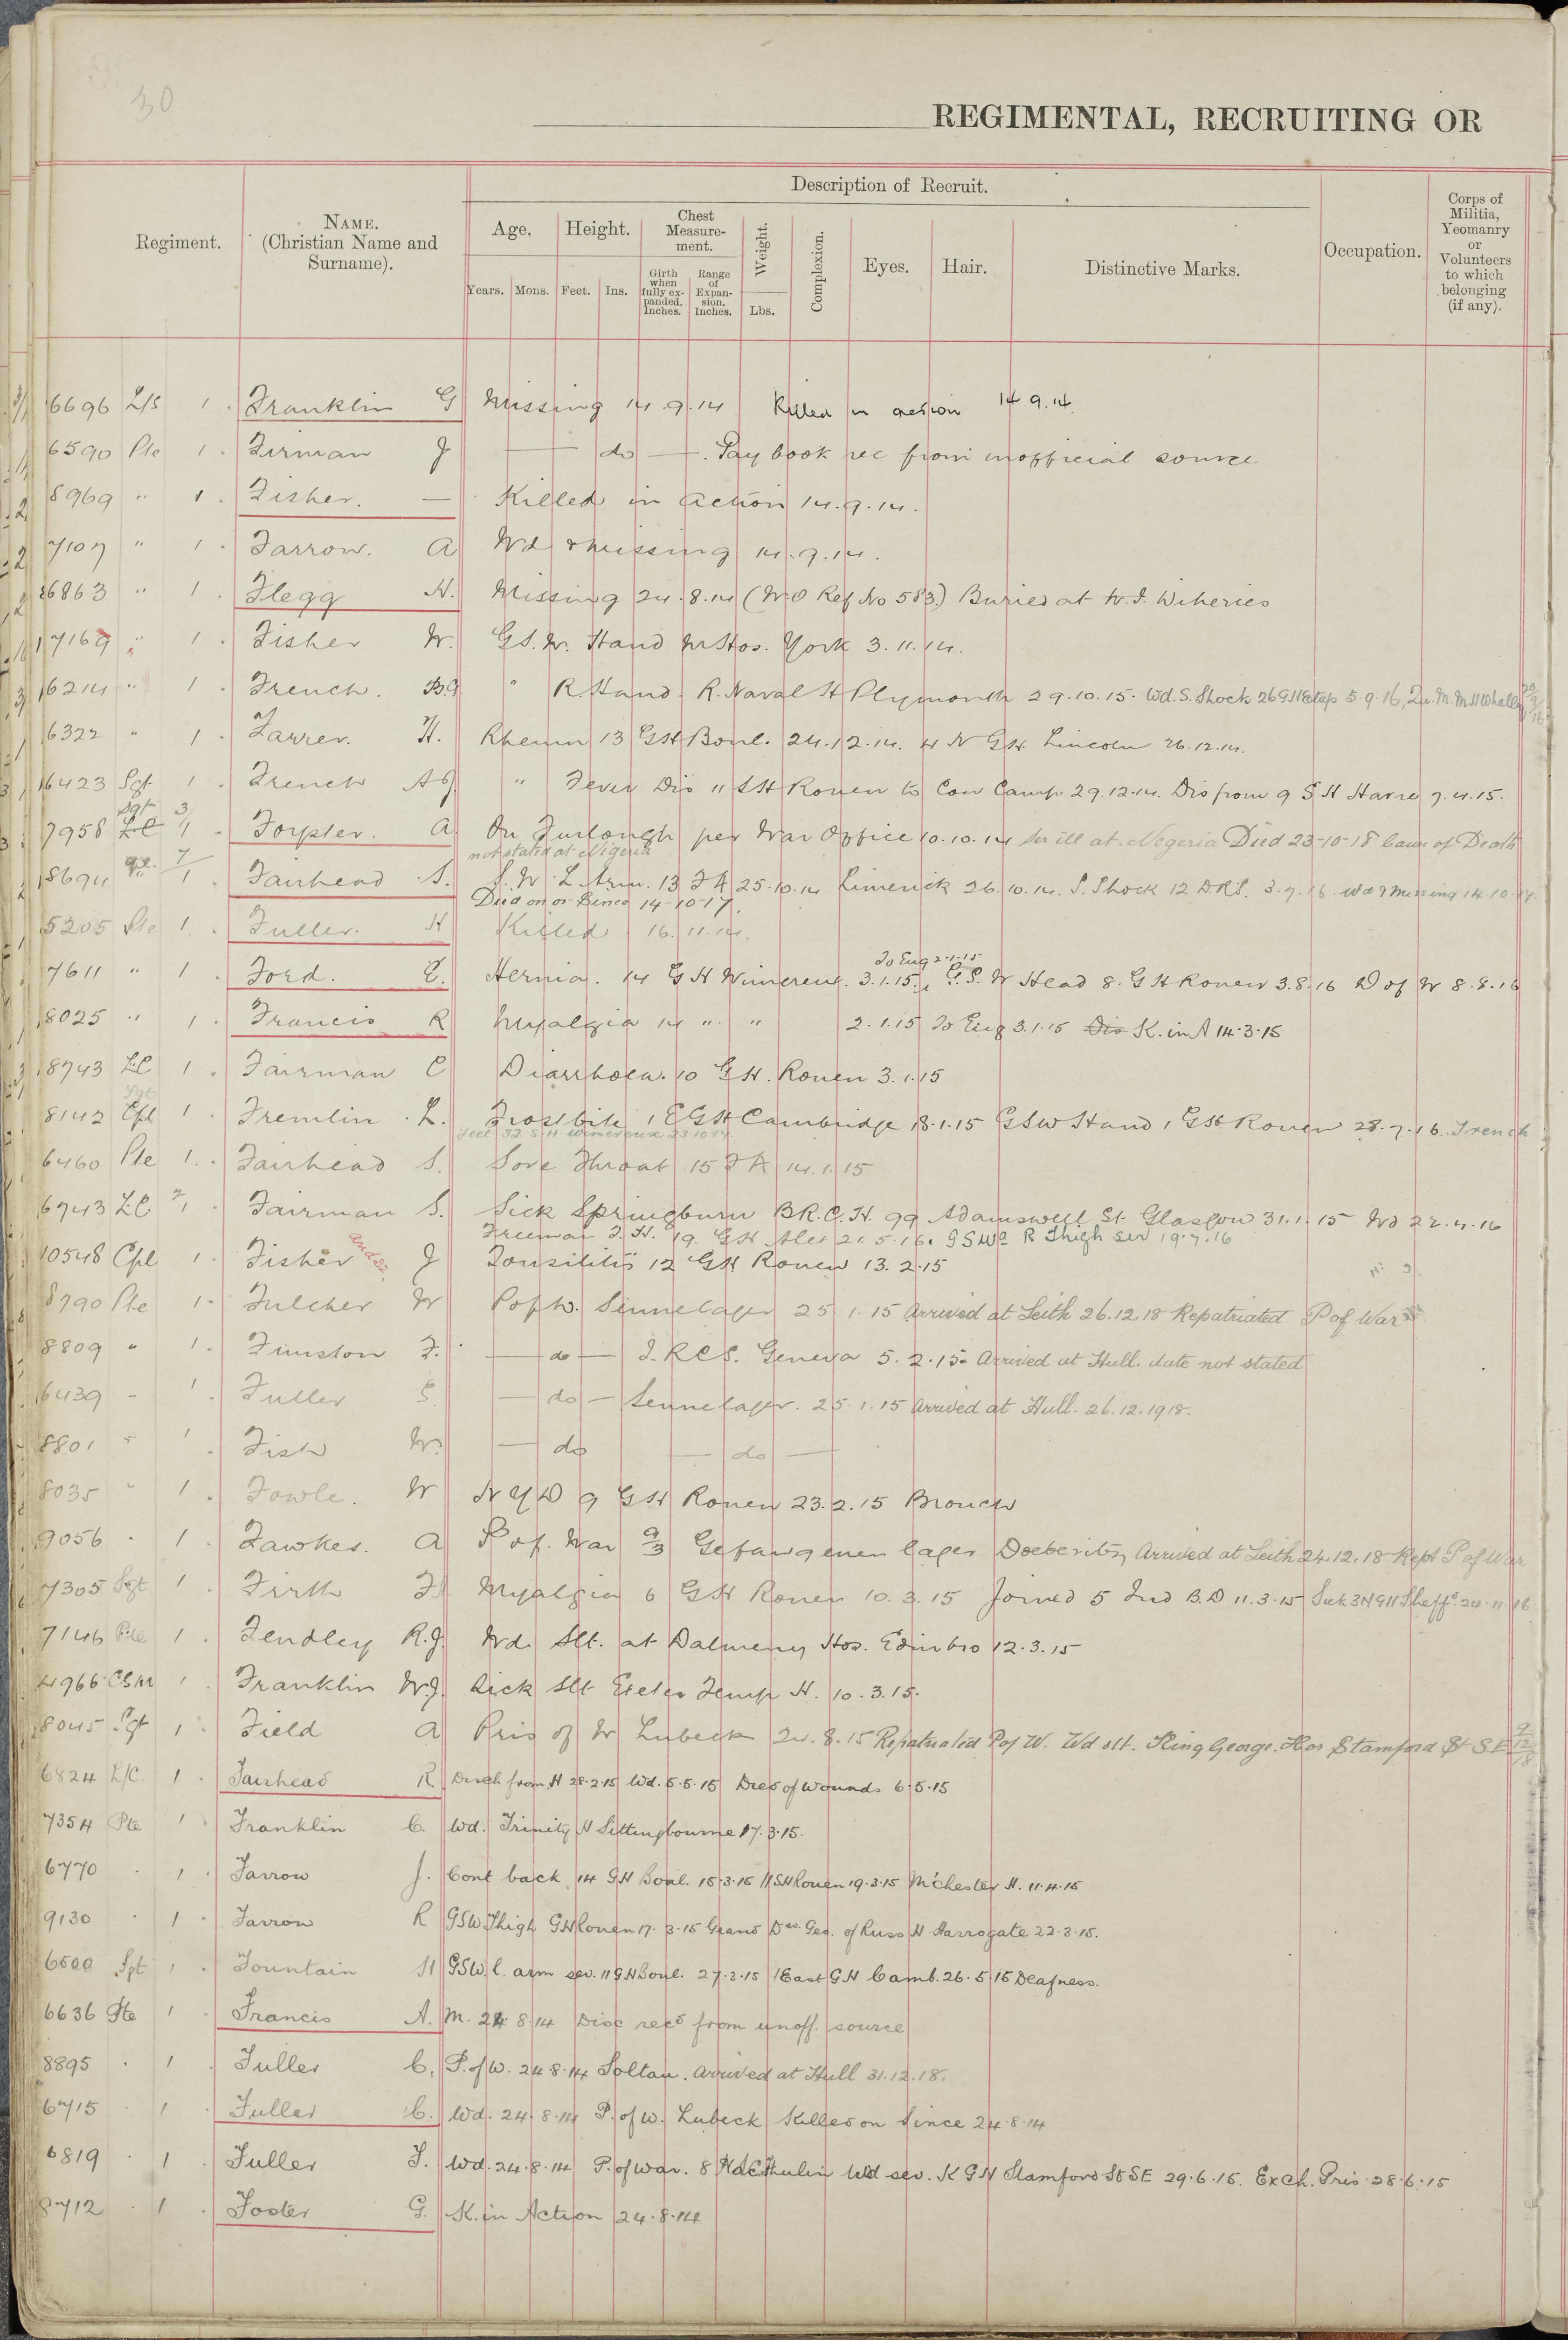 30
REGIMENTAL, RECRUITING OR
Regiment.
NAME.
(Christian Name and
Surname).
Description of Recruit.
Age.
Height.
Chest
Measure-
ment.
Weight.
Complexion.
Eyes.
Hair.
Distinctive Marks.
Occupation.
Corps of
Militia,
Yeomanry
or
Volunteers
to which
belonging
(if any).
Years.
Mons.
Feet.
Ins.
Girth
when
fully ex-
panded.
Inches.
Range
of
Expan-
sion.
Inches.
Lbs.
6696 L/S 1 Franklin G Missing 14.9.14 Killed in action 14 9.14
6590 Pte 1 Firman J — do —. Pay book rec from unofficial source
8969 " 1 Fisher. — Killed in action 14.9.14.
7107 " 1 Farrow. A Wd & missing 14.9.14.
6863 " 1 Flegg H. Missing 24.8.14 (W.O Ref No 583.) Buried at Wiheries
7169 " 1 Fisher W. G.S.W. Hand W Hos. York 3.11.14.
6214 " 1 French. B.G. " R Hand. R. Naval H Plymouth 29.10.15. Wd. S. Shock 26 GH Etap 5.9.16, Qu. M. M H Whalley
6322 " 1 Farrer. H. Rheum 13 GH Boul. 24.12.14. 4 N GH. Lincoln 26.12.14.
6423 Sgt 1 French A.J. " Fever Dis 11 SH Rouen to Con Camp 29.12.14. Dis from 9 S H Havre 7.4.15.
Sgt 3
7958 LC 1 Forpter. A On Furlough per War Office 10.10.14 Sv ill at Nigeria Died 23-10-18 Cause of Death
not stated at Nigeria
8694 7/1 Fairhead S. S.W. L Arm. 13 FA 25.10.14 Limerick 26.10.14. S. Shock 12 DRS. 3.7.16 Wd & Missing 14.10.17.
Died on or since 14-10-17.
5205 Pte 1. Fuller. H Killed 16.11.14.
To Eng 2.1.15
7611 " 1 Ford. E. Hernia. 14 G H Wimereux. 3.1.15. G.S. W Head 8. G H Rouen 3.8.16 D of W 8.8.16
8025 " 1 Francis R Myalgia 14 " " 2.1.15 To Eng 3.1.15 Dis K. in A 14.3.15
8743 LC 1 Fairman C Diarrhoea. 10 GH. Rouen 3.1.15
Sgt
8142 Cpl 1 Fremlin L. Frostbite 1 EGH Cambridge 18.1.15 GSW Hand 1 GH Rouen 28.7.16. Trench
feet 32 S H Wimereux 23 10 17
6460 Pte 1. Fairhead S. Sore Throat 15 FA 14.1.15
6743 LC 7/1 Fairman S. Sick Springburn B.R.C.H. 99 Adamswell St. Glasgow 31.1.15 Wd 22.4.16
Freeman F.H. 19 GH Alex 21.5.16. GSWd R Thigh sev 19.7.16
10548 Cpl 1 Fisher J Tonsilitis 12 GH Rouen 13.2.15
8790 Pte 1. Fulcher W P of W. Sennelager 25.1.15 Arrived at Leith 26.12.18 Repatriated P of War
8809 " 1. Funston F. — do — I.R.C.S. Geneva 5.2.15. Arrived at Hull. date not stated
6439 - 1. Fuller S. — do — Sennelager. 25.1.15 Arrived at Hull. 26.12.1918.
8801 " 1 Fish W. — do — do —
8035 " 1 Fowle. W N Y D 9 GH Rouen 23.2.15 Bronch
9056 . 1. Fawkes. A P of. War 9/3 Gefangenen lager Doeberitz, Arrived at Leith 24.12.18 Rept P of War
7305 Sgt. 1. Firth F. Myalgia 6 GH Rouen 10.3.15 Joined 5 Ind B.D 11.3.15 Sick 3N GH Sheffd. 24.11.16
7146 Pte 1. Fendley R.J. Wd. Slt. at Dalmeny Hos. Edinbro 12.3.15
4966 CSM 1 Franklin W.J. Sick Slt Exeter Temp H. 10.3.15.
8045 Sgt 1. Field A Pris of W Lubeck 24.8.15 Repatriated P of W. Wd slt. King George. Hos Stamford St S.E
6824 L/C. 1. Fairhead R Disch from H 28.2.15 Wd. 5.5.15 Died of Wounds 6.5.15
7354 Pte 1. Franklin C. Wd. Trinity H Sittingbourne 17.3.15.
6770 . 1. Farrow J. Cont back 14 GH Boul. 15.3.15 11 SH Rouen 19.3.15 M'chester H. 11.4.15
9130 . 1. Farrow R GSW Thigh GH Rouen 17.3.15 Grand Dss. Geo. of Russ H Harrogate 22.3.15.
6500 Sgt 1. Fountain H GSW l. arm sev. 11 GH Boul. 27.3.15 1 East GH Camb. 26.5.15 Deafness.
6636 Pte 1 Francis A. M. 24.8.14 Disc recd from unoff. source
8895 . 1. Fuller C. P. of W. 24.8.14 Soltau. Arrived at Hull 31.12.18.
6715 . 1. Fuller C. Wd. 24.8.14 P. of W. Lubeck Killed on Since 24.8.14
6819 . 1. Fuller F. Wd. 24.8.14 P. of War. 8 Wd sev. K G H Stamford St SE 29.6.15. Exch. Pris 28.6.15
8712 . 1. Foster G. K. in Action 24.8.14